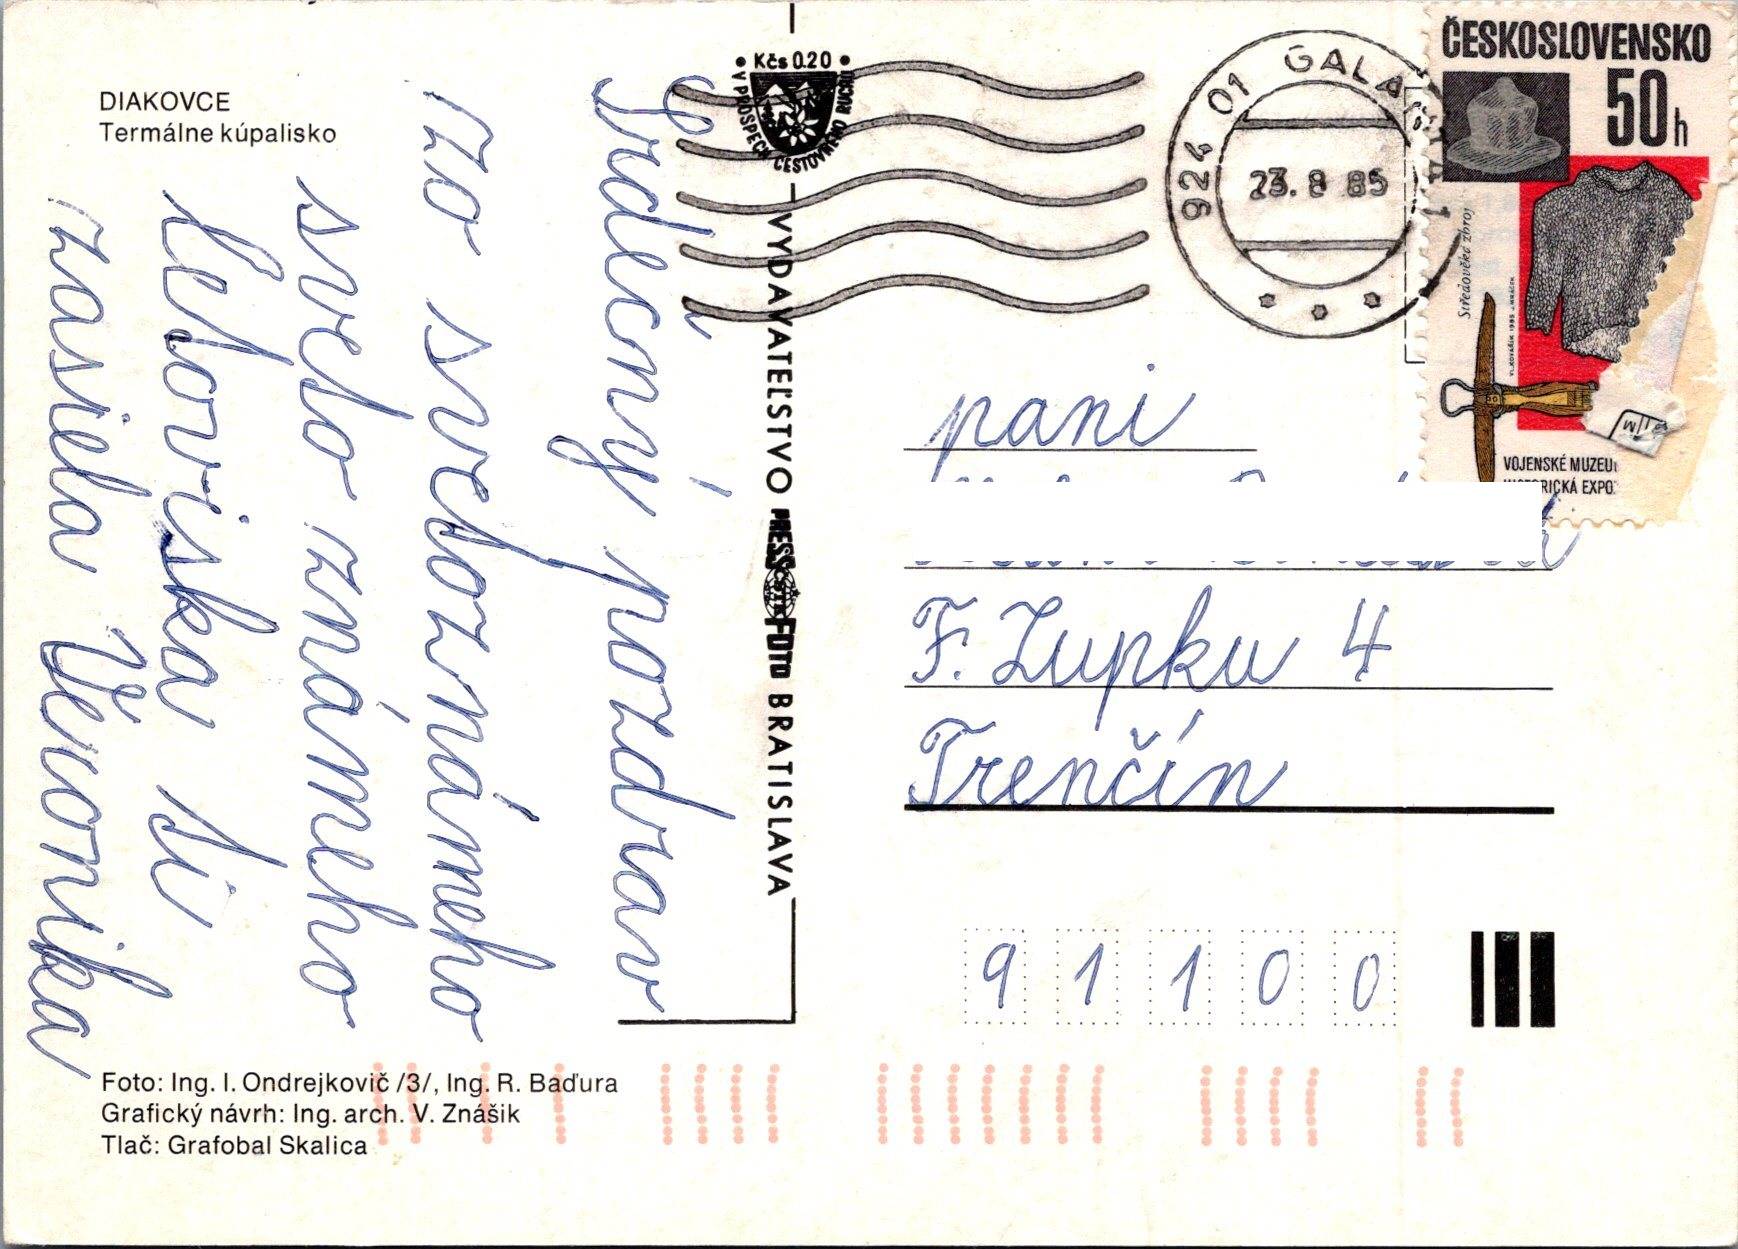 DIAKOVCE
Termálne kúpalisko
Srdečný pozdrav
zo svetoznámeho
sveto známeho
Letoviska ti
zasiela Veronika
Kčs 0.20
V PROSPECH CESTOVNÉHO RUCHU
VYDAVATEĽSTVO PRESSFOTO BRATISLAVA
924 01 GALANTA 1
23. 8 85
ČESKOSLOVENSKO
50h
Středověká zbroj
VOJENSKÉ MUZEU
HISTORICKÁ EXPO
pani
F. Zupku 4
Trenčín
91100
Foto: Ing. I. Ondrejkovič /3/, Ing. R. Baďura
Grafický návrh: Ing. arch. V. Znášik
Tlač: Grafobal Skalica